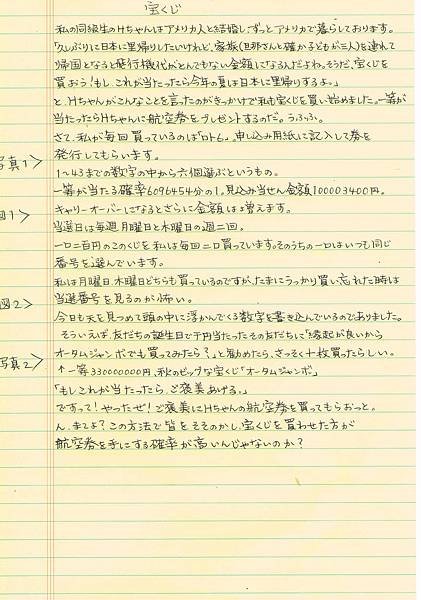 宝くじ
私の同級生のHちゃんはアメリカ人と結婚しずっとアメリカで暮らしております。
「久しぶりに日本に里帰りしたいけれど、家族(旦那さんと確か子どもが三人)を連れて
帰国となると飛行機代がとんでもない金額になるんだよね。そうだ、宝くじを
買おう!もし、これが当たったら今年の夏は日本に里帰りするよ。」
と、Hちゃんがこんなことを言ったのがきっかけで私も宝くじを買い始めました。一等が
当たったらHちゃんに航空券をプレゼントするのだ。うふふ。
さて、私が毎回買っているのは「ロト6」。申し込み用紙に記入して券を
写真1> 発行してもらいます。
1~43までの数字の中から六個選ぶというもの。
一等が当たる確率6096454分の1。見込み当せん金額100003400円。
図1> キャリーオーバーになるとさらに金額は増えます。
当選日は毎週月曜日と木曜日の週二回。
一口二百円のこのくじを私は毎回二口買っています。そのうちの一口はいつも同じ
番号を選んでいます。
私は月曜日、木曜日どちらも買っているのですが、たまにうっかり買い忘れた時は
図2> 当選番号を見るのが怖い。
今日も天を見つめて頭の中に浮かんでくる数字を書き込んでいるのでありました。
そういえば、友だちの誕生日で千円当たったその友だちに「縁起が良いから
写真2> オータムジャンボでも買ってみたら?」と勧めたら、さっそく十枚買ったらしい。
↑一等330000000円、秋のビッグな宝くじ「オータムジャンボ」
「もしこれが当たったら、ご褒美あげる。」
ですって!やったぜ!ご褒美にHちゃんの航空券を買ってもらおっと。
ん、まてよ?この方法で皆をそそのかし、宝くじを買わせた方が
航空券を手にする確率が高いんじゃないのか?